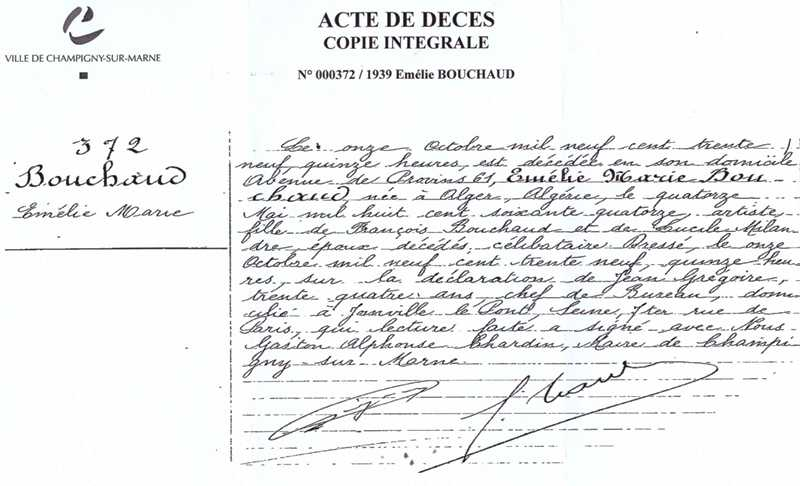 VILLE DE CHAMPIGNY-SUR-MARNE
ACTE DE DECES
COPIE INTEGRALE
N° 000372 / 1939 Emélie BOUCHAUD
372
Bouchaud
Emélie Marie
Le onze Octobre mil neuf cent trente
neuf, quinze heures, est décédée en son domicile
Avenue de Provins 61, Emélie Marie Bou
chaud, née à Alger, Algérie, le quatorze
Mai mil huit cent soixante quatorze, artiste
fille de François Bouchaud et de Lucile Milan
dre, époux décédés, célibataire. Dressé le onze
Octobre mil neuf cent trente neuf, quinze heu
res, sur la déclaration de Jean Grégoire,
trente quatre ans, chef de Bureau, domi
cilié à Joinville le Pont, Seine, 7ter rue de
Paris, qui lecture faite a signé avec Nous
Gaston Alphonse Chardin, Maire de Champi
gny-sur-Marne.